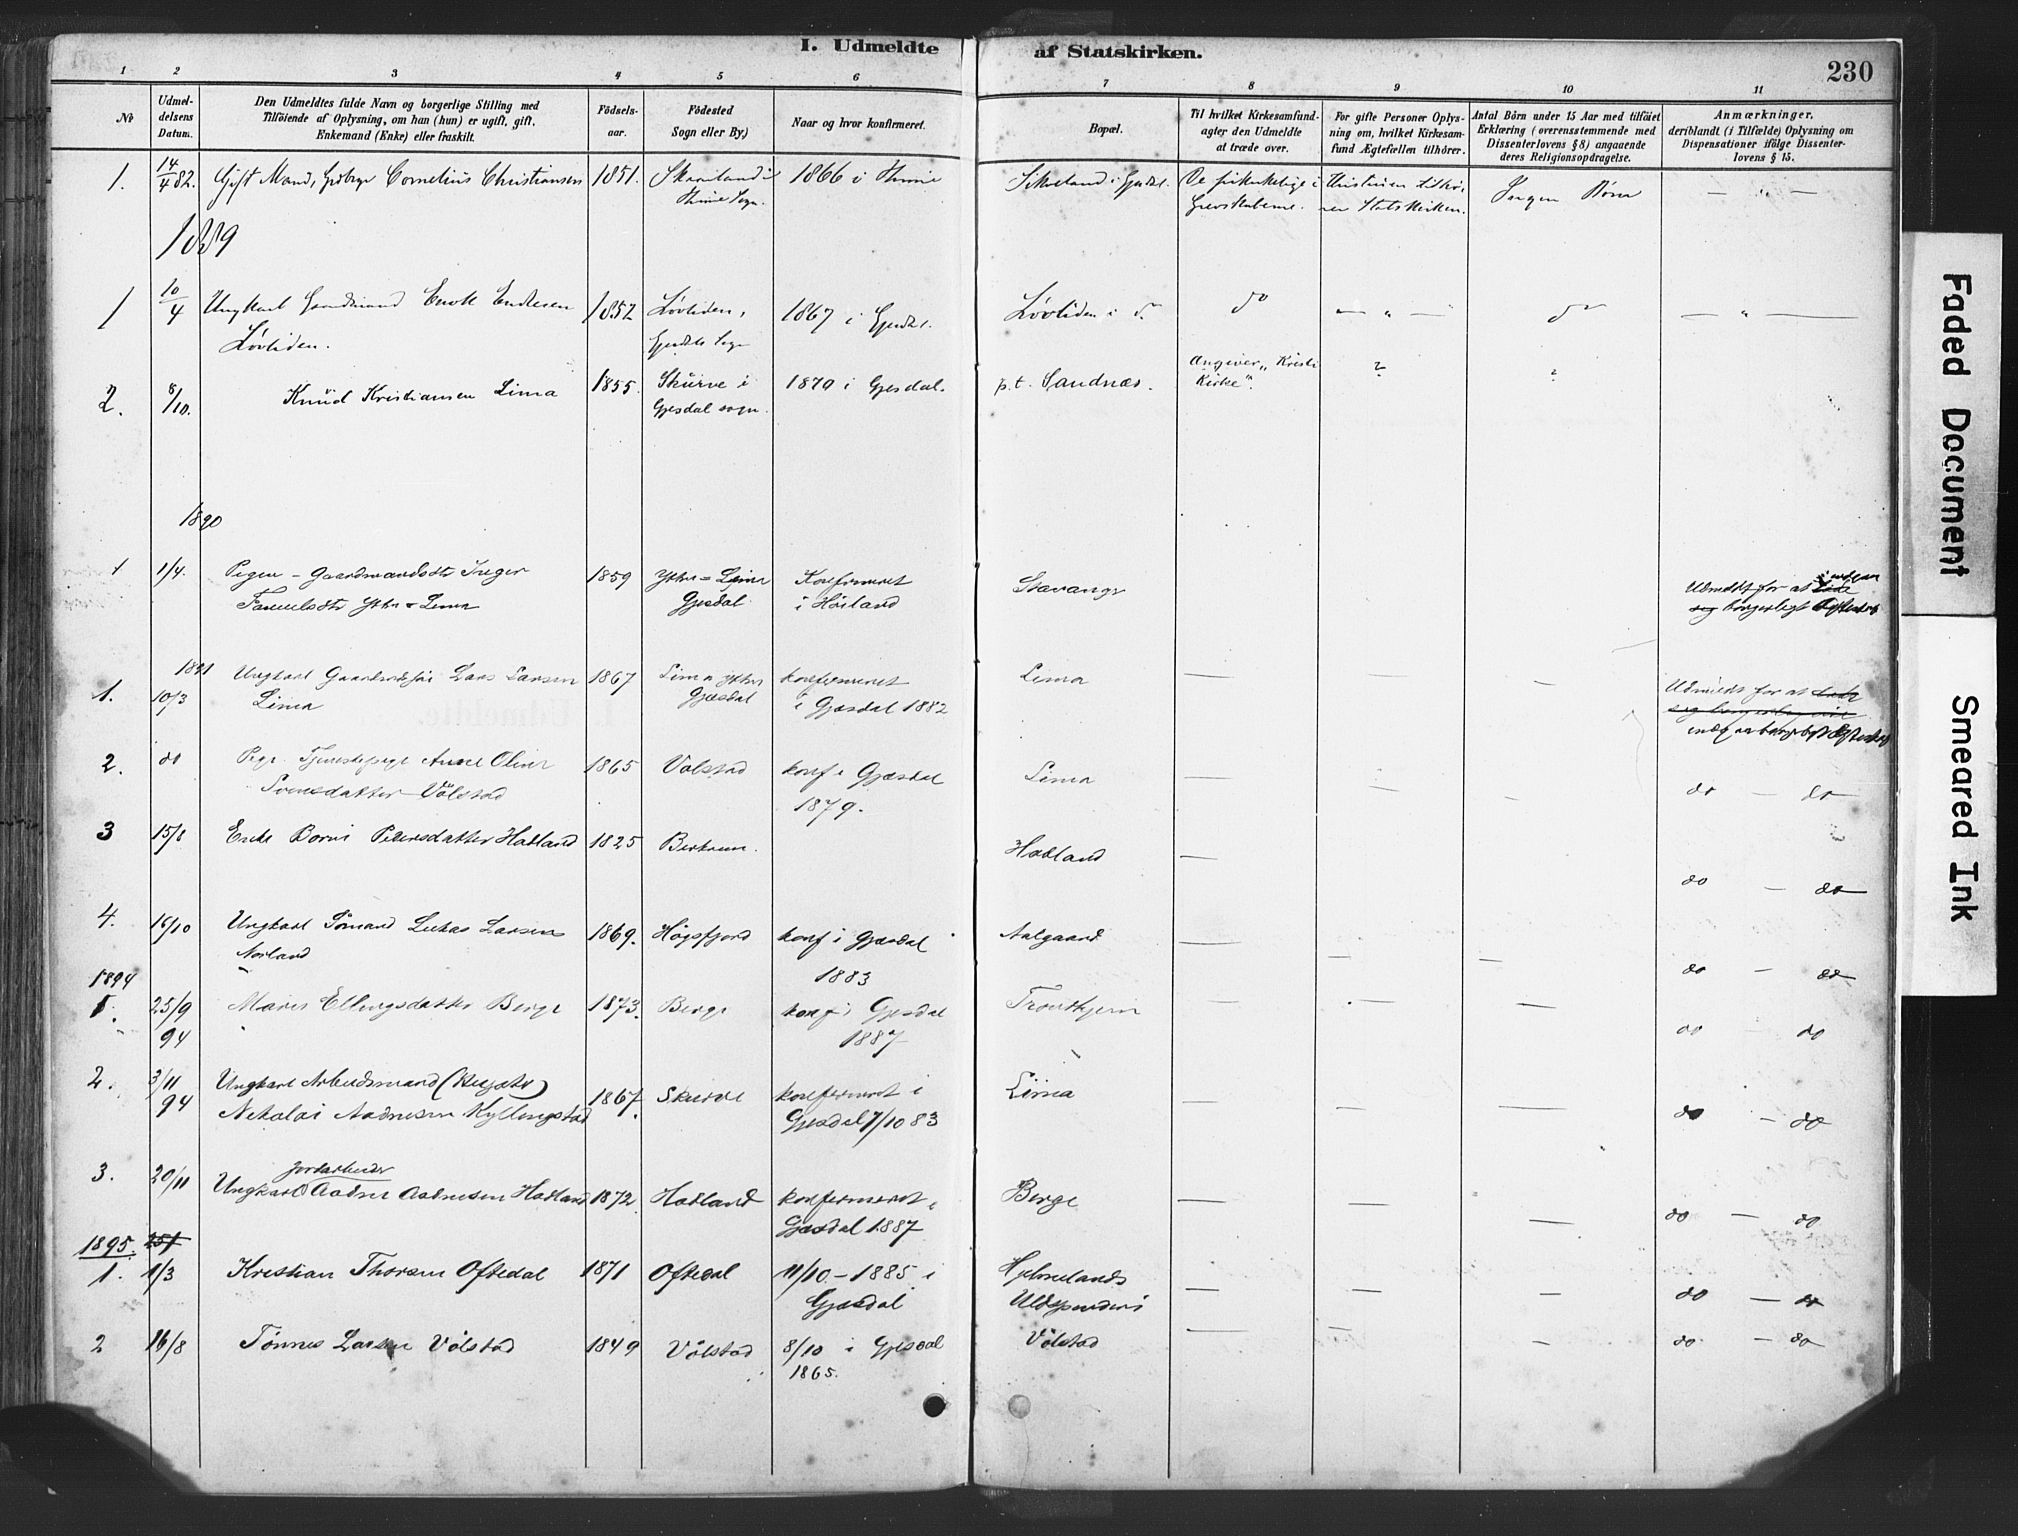 I. Udmeldte af Statskirken.
230
1 2 3 4 5 6 7 8 9 10 11
No
Udmel-
delsens
Datum.
Den Udmeldtes fulde Navn og borgerlige Stilling med
Tilföiende af Oplysning, om han (hun) er ugift, gift,
Enkemand (Enke) eller fraskilt.
Födsels-
aar.
Födested
Sogn eller By)
Naar og hvor konfirmeret.
Bopæl.
Til hvilket Kirkesamfund-
agter den Udmeldte
at træde over.
For gifte Personer Oplys-
ning om, hvilket Kirkesam-
fund Ægtefællen tilhörer.
Antal Börn under 15 Aar med tilföiet
Erklæring (overensstemmende med
Dissenterlovens § 8) angaaende
deres Religionsopdragelse.
Anmærkninger.
deriblandt (i Tilfælde) Oplysning om
Dispensationer ifölge Dissenter-
lovens § 15.
1. 14/4 82. Gift Mand, Cornelius Christiansen 1851. i 1866 i Thime i Gjesdal. De frikirkelige i Hustruen tilhö- Ingen Börn — " —
Thime Sogn. rer Statskirken.
1889
1 10/4 Ungkarl Gaardmand Enok Endresen 1852 Lövliden, 1867 i Gjesdal. Lövliden i do — " — do — " —
Lövliden. Gjesdals Sogn
2. 8/10. Knud Kristiansen Lima 1855. Skurve i 1870 i Gjesdal. p. t. Sandnæs. Angiver „Kristi ? ?
Gjesdal sogn. Kirke".
1890
1 1/4. Pigen - Gaardmandsdtr Inger 1859 Ythre=Lima Konfirmeret Stavanger Udmeldt for at indgaa
Gjesdal. i Höiland borgerligt Ægteskab
1891
1. 10/3 Ungkarl Lars Larsen 1867 Lima ythre konfirmeret Lima — — — Udmeldt for at
Lima Gjæsdal i Gjæsdal 1882
indgaa borgerligt Ægteskab
2. do Pige. Tjenestepige Anne Oline 1865 Vølstad konf i Gjæsdal Lima — — — do — do
Svensdatter Vølstad 1879.
3 15/8 Enke Borni Petersdatter Hadland 1825 Birkrem. Hadland — do — do
4. 16/10 Ungkarl Sömand Lukas Larsen 1869. Högsfjord konf i Gjæsdal Aalgaard — — — do — do
1883
1894
1. 25/9 Maren Ellingsdatter Berge 1873. Berge konf i Gjesdal — — — do — do
94 1887
2. 3/11 Ungkarl Arbeidsmand 1867. Skurve konfirmeret i Lima — — — do — do
94 Nikolai Aadnesen Kyllingstad Gjesdal 7/10 83
3. 20/11 Jordarbeider
Ungkarl Aadne Aadnesen Hadland 1872. Hadland konfirmeret i Berge — — — do — do
Gjæsdal 1887
1895. 25/
1. 1/3 Kristian Thorsen Oftedal 1871 Oftedal 11/10 - 1885 i — — — do — do
Gjæsdal Uldspinderi
2 16/8 Tönnes Larsen Vølstad 1849 Vølstad 8/10 i Gjesdal Vølstad — — — do — do
1865.
Faded Document
Smeared Ink